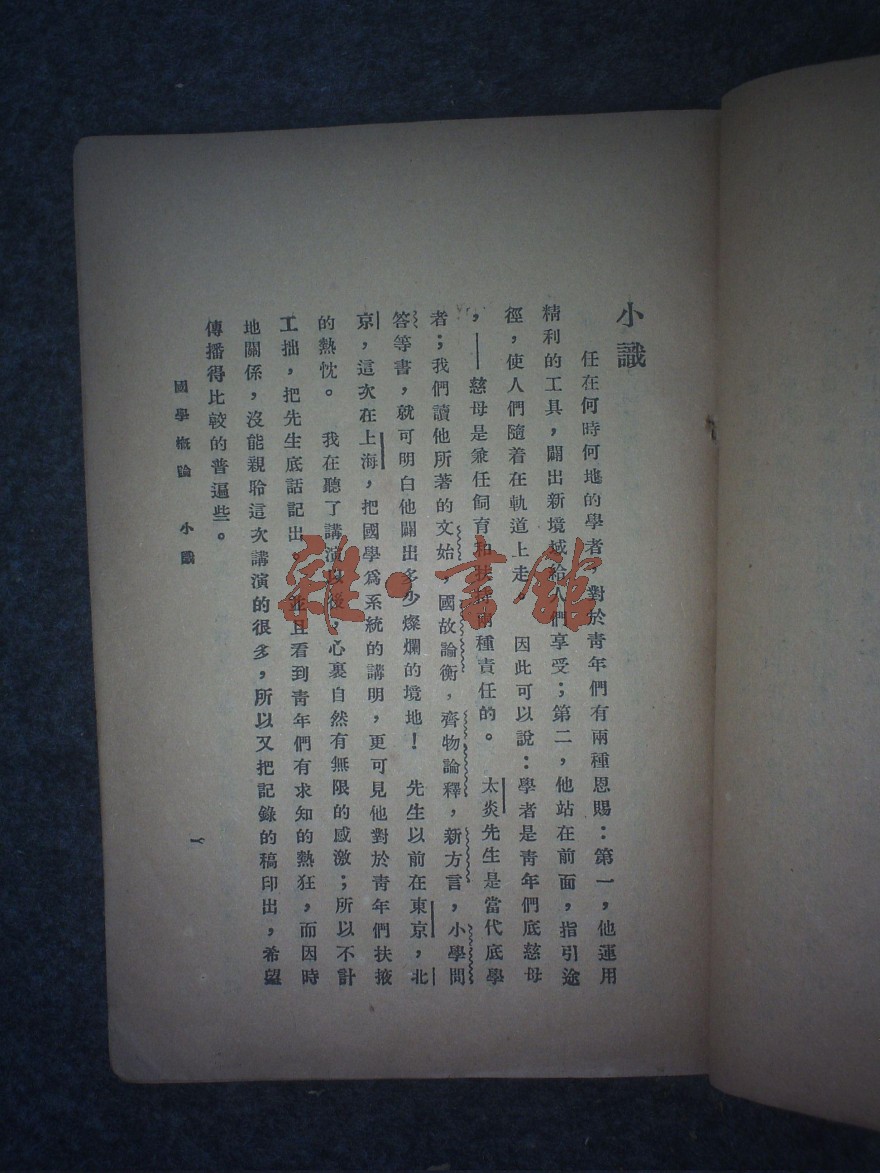 小識
任在何時何地的學者，對於青年們有兩種恩賜：第一，他運用
精利的工具，闢出新境域給人們享受；第二，他站在前面，指引途
徑，使人們隨着在軌道上走　因此可以說：學者是青年們底慈母
，——慈母是兼任飼育和扶持兩種責任的。　太炎先生是當代底學
者；我們讀他所著的文始，國故論衡，齊物論釋，新方言，小學問
答等書，就可明白他闢出多少燦爛的境地！　先生以前在東京，北
京，這次在上海，把國學爲系統的講明，更可見他對於青年們扶掖
的熱忱。　我在聽了講演以後，心裏自然有無限的感激；所以不計
工拙，把先生底話記出。並且看到青年們有求知的熱狂，而因時
地關係，沒能親聆這次講演的很多，所以又把記錄的稿印出，希望
傳播得比較的普遍些。
國學概論　小識
一
雜·書館